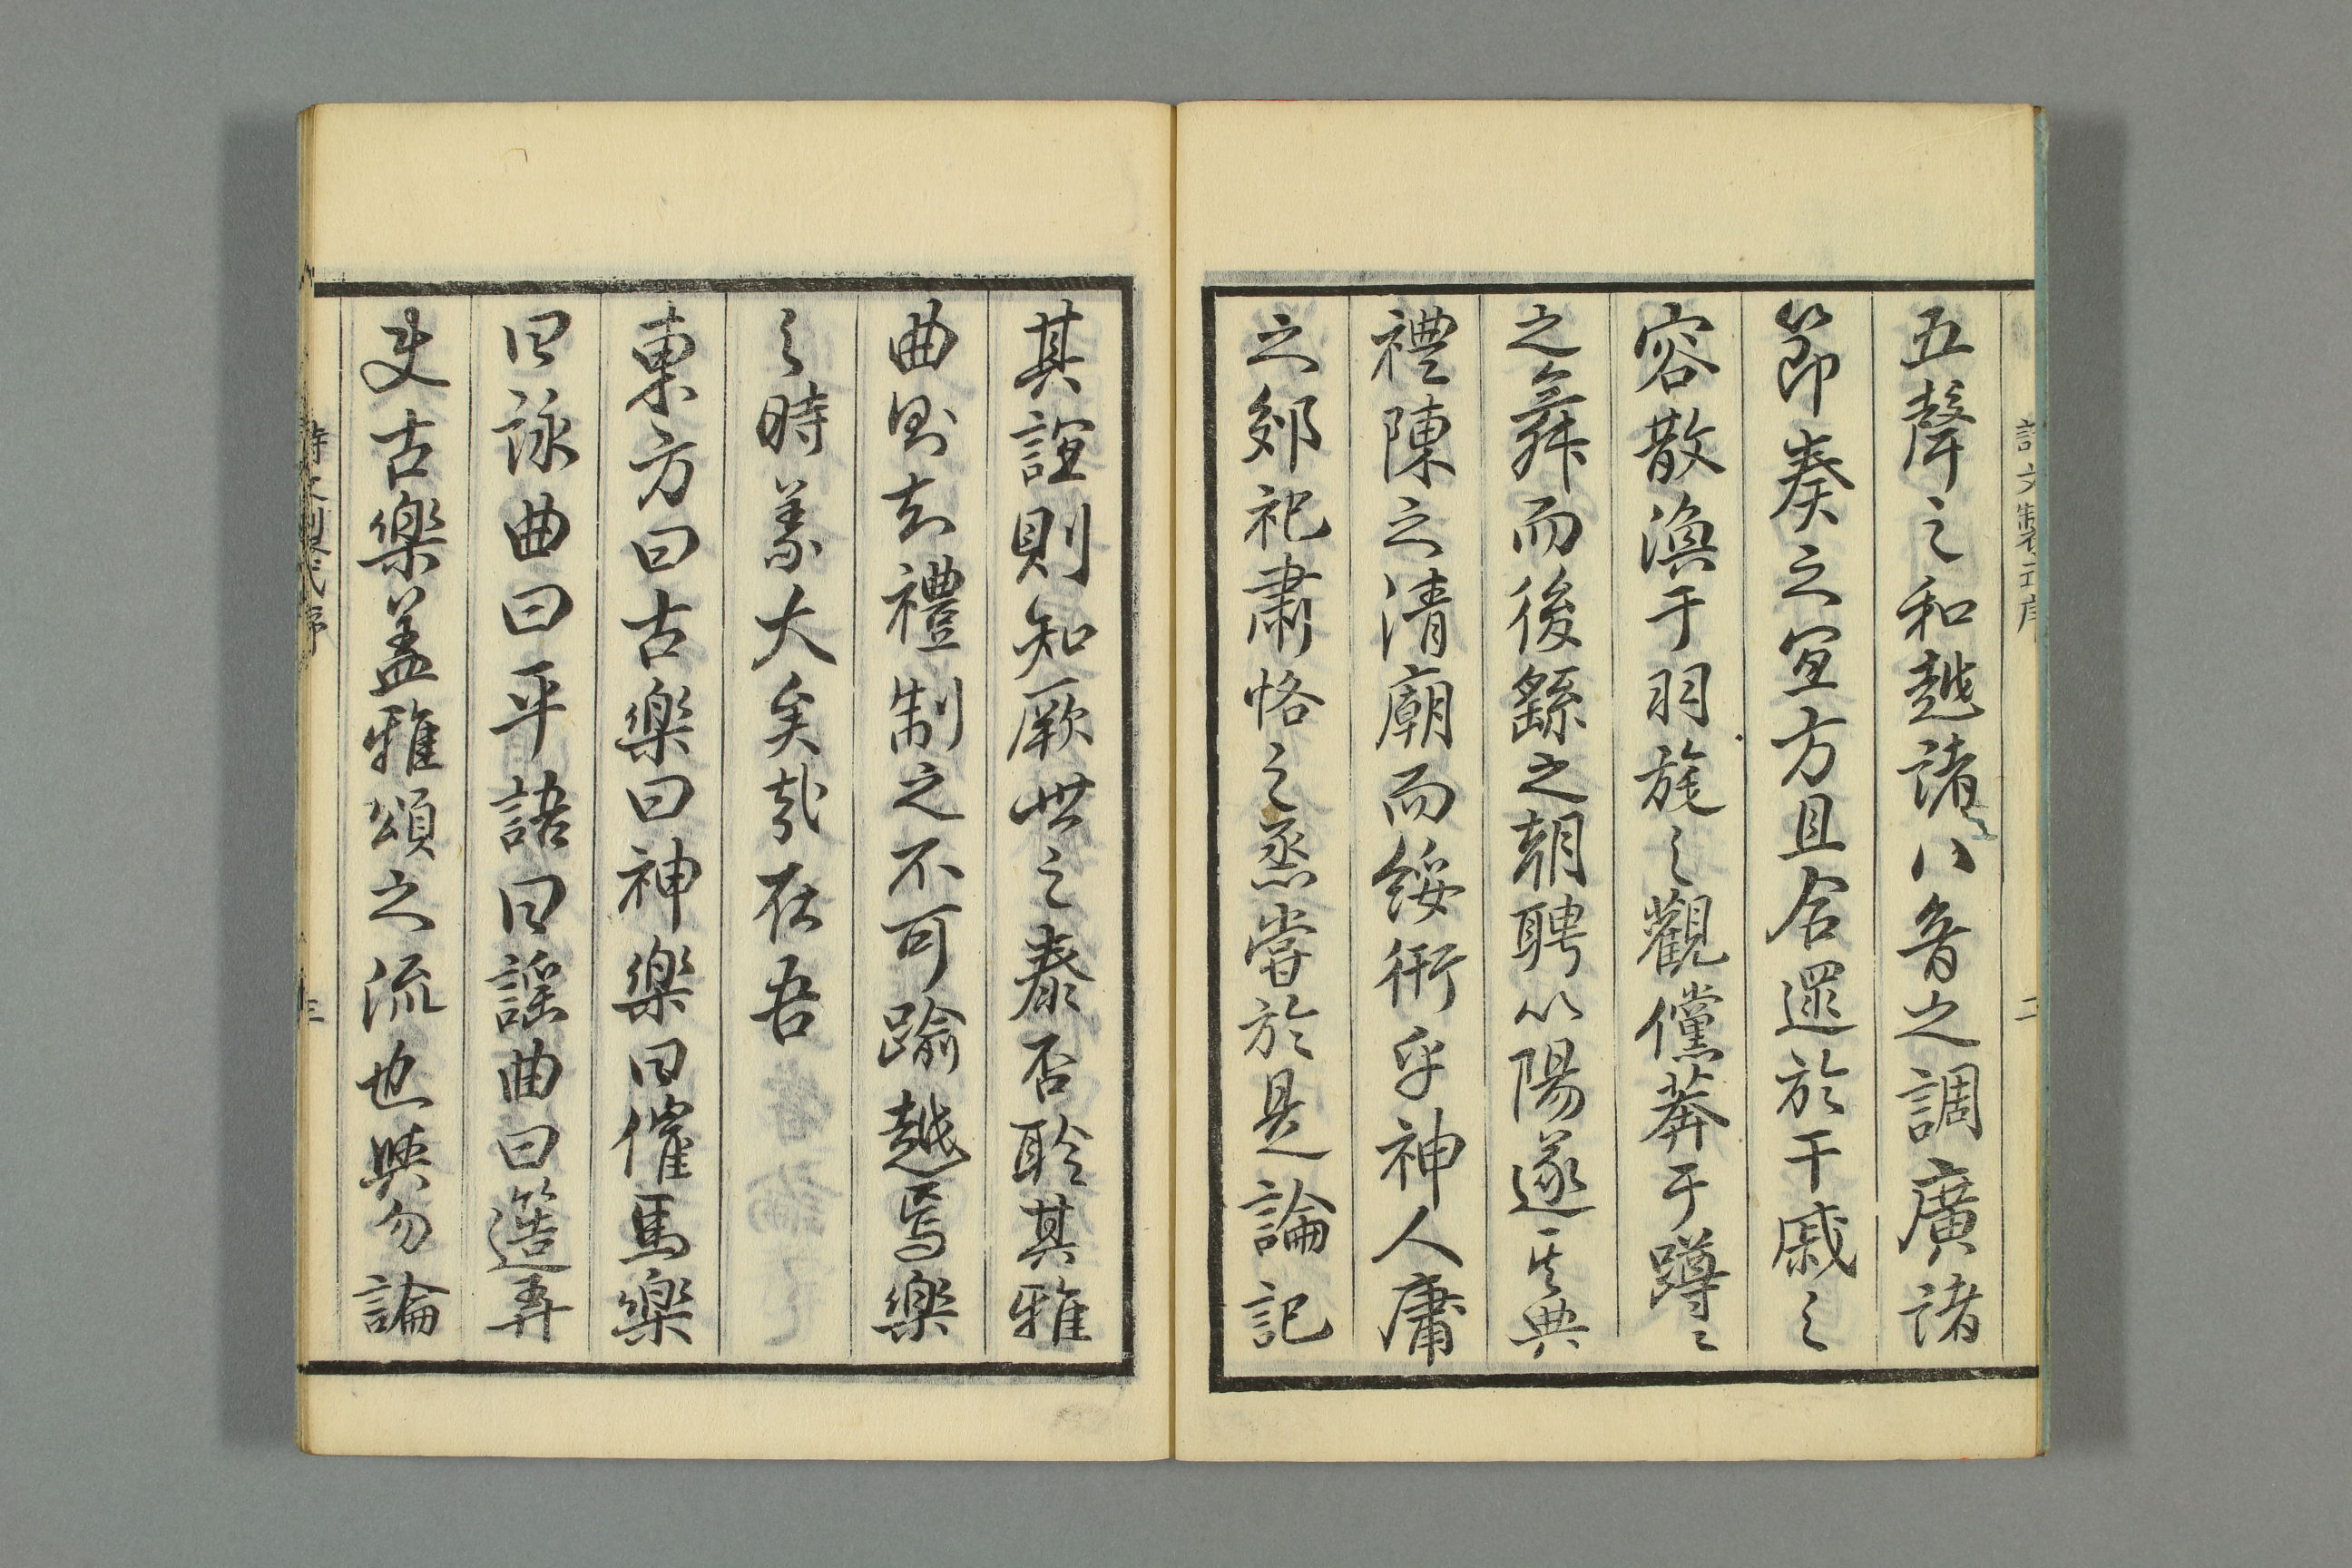 五聲之和越諸八音之調廣諸
節奏之宜方且含還於干戚之
容散渙于羽旄之觀儻莽于蹲〻
之舞而後繇之朝聘以陽遂其典
禮陳之清廟而綏衎乎神人庸
之郊祀肅恪之烝嘗於是論記
其誼則知厥世之泰否聆其雅
曲則知禮制之不可踰越焉樂
之時義大矣哉在吾
東方曰古樂曰神樂曰催馬樂
曰詠曲曰平語曰謡曲曰造弄
夫古樂蓋雅頌之流也與勿論